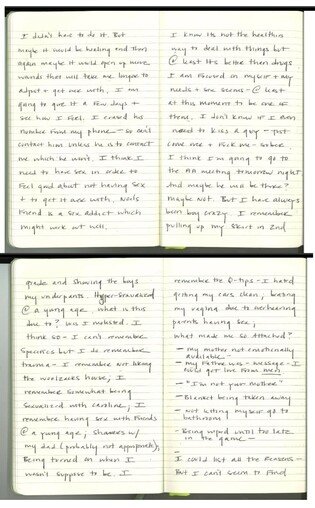 I didn't have to do it. But
maybe it would be healing and then
again maybe it would open up more
wounds that will take me longer to
adjust + get over with. I am
going to give it a few days +
see how I feel. I erased his
number from my phone - so can't
contact him unless he is to contact
me which he won't. I think I
need to have sex in order to
feel good about not having sex
+ to get it over with. 
friend is a sex addict which
might work out well.
I know its not the healthiest
way to deal with things but
@ least its better than drugs
I am focused on myself + my
needs + sex seems - @ least
at this moment to be one of
them. I don't know if I even
need to kiss a guy - just
come over + fuck me - sober
I think I'm going to go to
the AA meeting tomorrow night
and maybe he will be there?
maybe not. But I have always
been boy crazy I remember
pulling up my skirt in 2nd
grade and showing the boys
my underpants. Hyper-sexualized
@ a young age. what is this
due to? was I molested. I
think so - I can't remember
specifics but I do remember
trauma - I remember not liking
the house, I
remember somewhat being
sexualized with caroline, I
remember having sex with friends
@ a young age; showers w/
my dad (probably not appropriate);
Being turned on when I
wasn't suppose to be. I
remember the Q-tips - I hated
getting my ears clean; 
my vagina due to overhearing
parents having sex;
what made me so attached?
- my mother not emotionally
available -
- my father was - message - I
could get love from men
- "I'm not your mother"
- Blanket being taken away
- not letting myself go to
bathroom
- Being wiped until too late
in the game -
-
I could list all the reasons -
But I can't seem to find